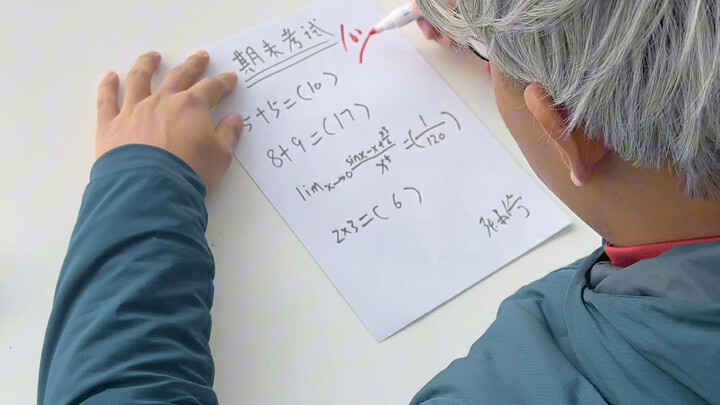 期末考试
5+5=(10)
8+9=(17)
lim x→0 (sinx-x+x³/6)/x⁵=(1/120)
2×3=(6)